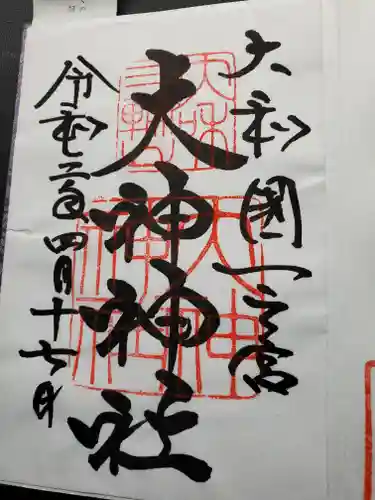 大和國一之宮
大神神社
令和三年四月十七日